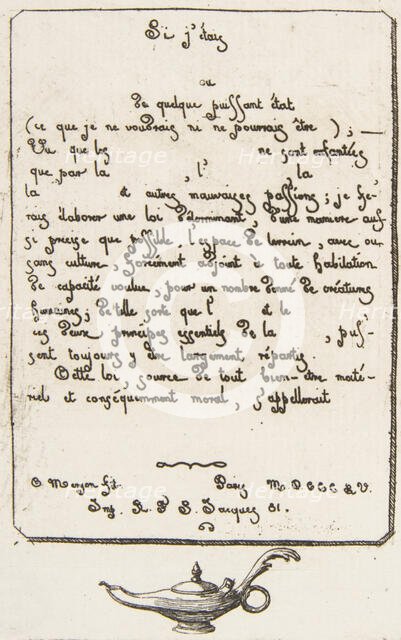 Si j'étais
ou
de quelque puissant état
(ce que je ne voudrais ni ne pourrais être) ; —
Vu que les ne sont enfantées
que par la , l' , la
la et autres mauvaises passions ; je fe-
rais élaborer une loi déterminant, d'une manière aus-
si précise que possible, l'espace de terrain, avec ou
sans culture, forcément adjoint à toute habitation
de capacité voulue, pour un nombre donné de créatures
humaines ; de telle sorte que l' et le
ces deux principes essentiels de la , puf-
sent toujours y être largement répartis.
Cette loi, source de tout bien-être maté-
riel et conséquemment moral, s'appellerait
C. Meryon fit. Paris M.D.CCC.LV.
Imp. R. N. S. Jacques 81.
Heritage
Heritage